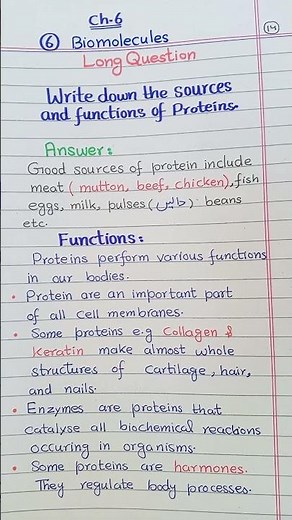 Ch-6
14
6 Biomolecules
Long Question
Write down the sources
and functions of Proteins.
Answer:
Good sources of protein include
meat (mutton, beef, chicken), fish
eggs, milk, pulses (دالیں) beans
etc.
Functions:
Proteins perform various functions
in our bodies.
• Protein are an important part
of all cell membranes.
• Some proteins e.g Collagen &
Keratin make almost whole
structures of cartilage, hair,
and nails.
• Enzymes are proteins that
catalyse all biochemical reactions
occuring in organisms.
• Some proteins are harmones.
They regulate body processes.